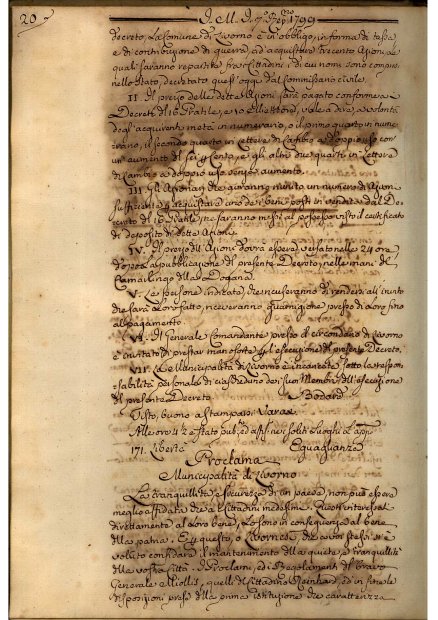 20
I. M. I. 7.º Febb.º 1799
decreto, La Comune di Livorno è in obbligo, in forma di tassa
e di contribuzione di guerra, ad acquistare trecento Azioni, Le
quali saranno repartite tra i Cittadini, i di cui nomi sono compresi
nello stato, decretato quest'oggi dal Commissario civile.
II. Il prezzo delle dette Azioni sarà pagato conforme a
Decreti de' 16 Pratile, e 10 Messidoro, vale a dire a volontà
degl'acquirenti metà in numerario, o il primo quarto in nume-
rario, il secondo quarto in Lettere di Cambio a doppio uso con
un aumento del sei p Cento, e gli altri due quarti in Lettere
di Cambio a doppio uso senza aumento.
III. Gli Azionari che avranno riunito un numero di Azioni
sufficiente p acquistare uno de' beni posti in vendita dal De-
creto de' 16 Pratile, ne saranno messi al possesso visto il certificato
di deposito di dette Azioni.
IV. Il prezzo dell'Azioni dovrà essere versato nelle 24 ore
dopo la pubblicazione del presente Decreto, nelle mani del
Camarlingo della Dogana.
V. Le persone indicate, che ricuseranno di rendersi all'invito
che sarà loro fatto, riceveranno guarnigione presso di loro fino
all pagamento.
VI. Il Generale Comandante presso il circondario di Livorno
è invitato di prestar mano forte p l'esecuzione del presente Decreto.
VII. La Municipalità di Livorno è incaricata sotto la respon-
sabilità personale di ciascheduno dei suoi Membri dell'esecuzione
del presente Decreto
Visto, buono a stamparsi,
Alle ore 4 2 è stato pub. ed affisso ne soliti Luoghi e app.
171. Libertà Eguaglianza
Proclama
Municipalità di Livorno
La tranquillità, e sicurezza di un paese, non può essere
meglio affidata che a i Cittadini medesimi. Questi interessati
direttamente al loro bene, lo sono in conseguenza al bene
della patria. E a questo, o Livornesi, che voi stessi si è
voluto confidare il mantenimento della quiete, e tranquillità
della vostra Città. I Proclami, ed i Regolamenti del bravo
Generale Miollis, quelli del Cittadino Reinhard, ed in fine le
disposizioni prese della prima istituzione che caratterizza